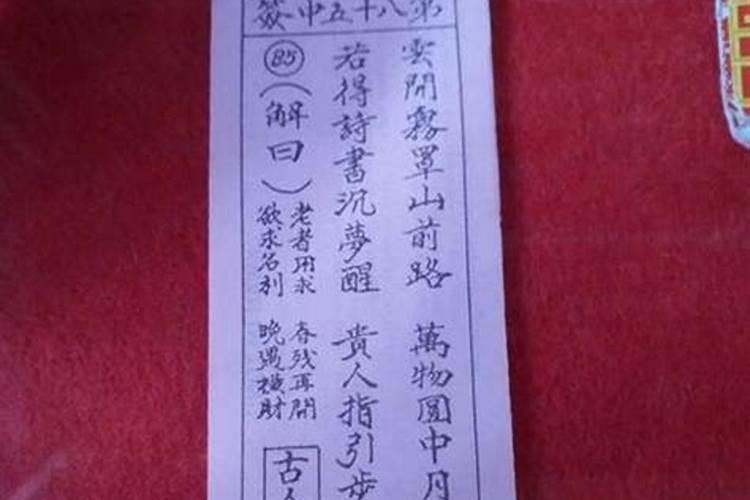 第八十五中簽
雲開霧罩山前路 萬物圓中月
若得詩書沉夢醒 貴人指引步
85(解曰)
老者用求 春残再開
欲求名利 晚遇橫財
古